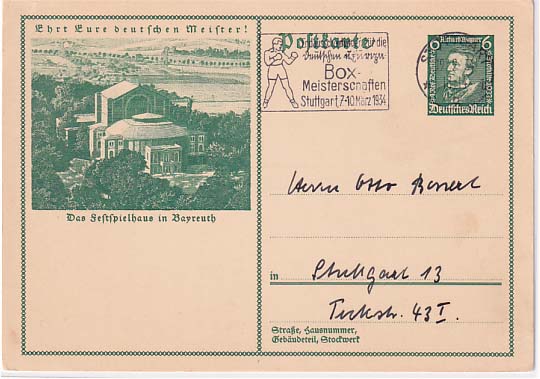 Ehrt Eure deutschen Meister!
Das Festspielhaus in Bayreuth
Postkarte
für die
deutschen
Box-
Meisterschaften
Stuttgart, 7-10. März 1934
6 Richard Wagner 6
Deutsches Reich
Herrn Otto
in Stuttgart 13
Teckstr. 43 I.
Straße, Hausnummer,
Gebäudeteil, Stockwerk